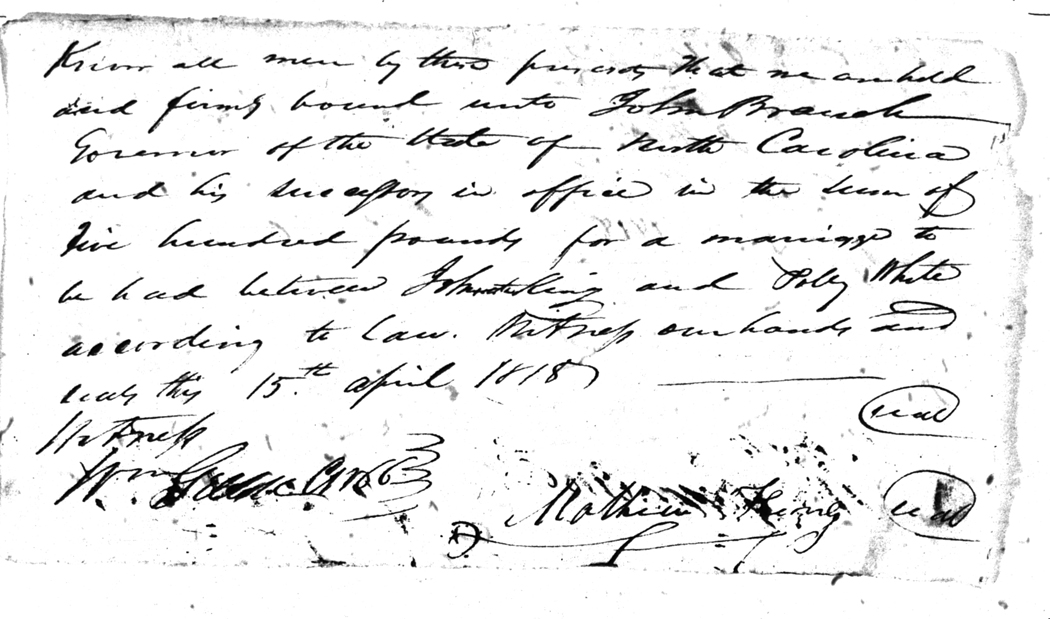 Know all men by these presents that we are held
and firmly bound unto John Branch
Governor of the State of North Carolina
and his successors in office in the sum of
five hundred pounds for a marriage to
be had between King and Polly White
according to Law. Witness our hands and
seals this 15th april 1818
seal
Witness
Wm
Mathew King seal